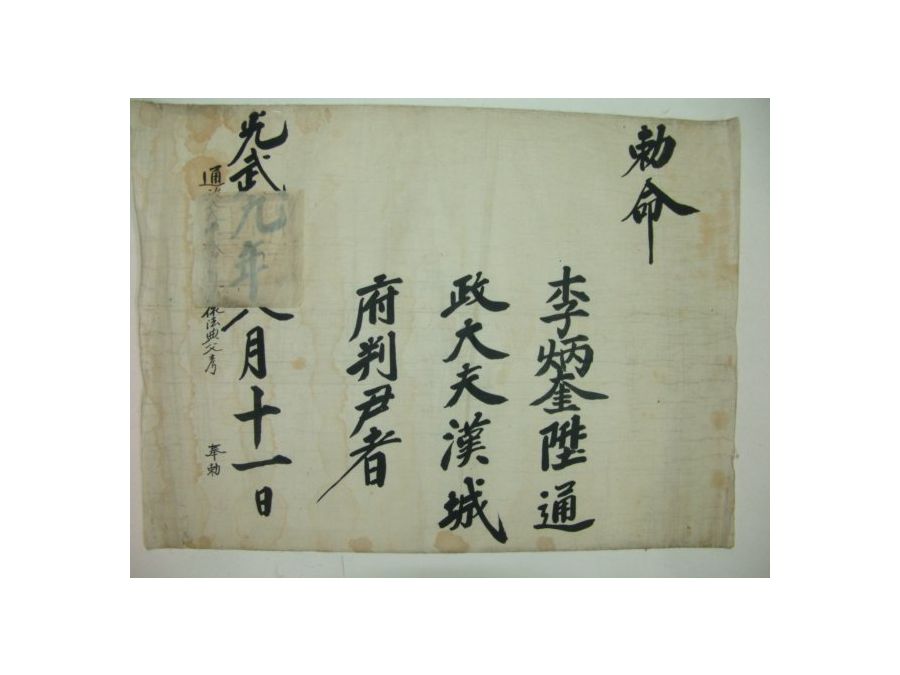 勅命
李炳奎陞通
政大夫漢城
府判尹者
光武九年八月十一日
通政大夫 依法典父考 奉勅